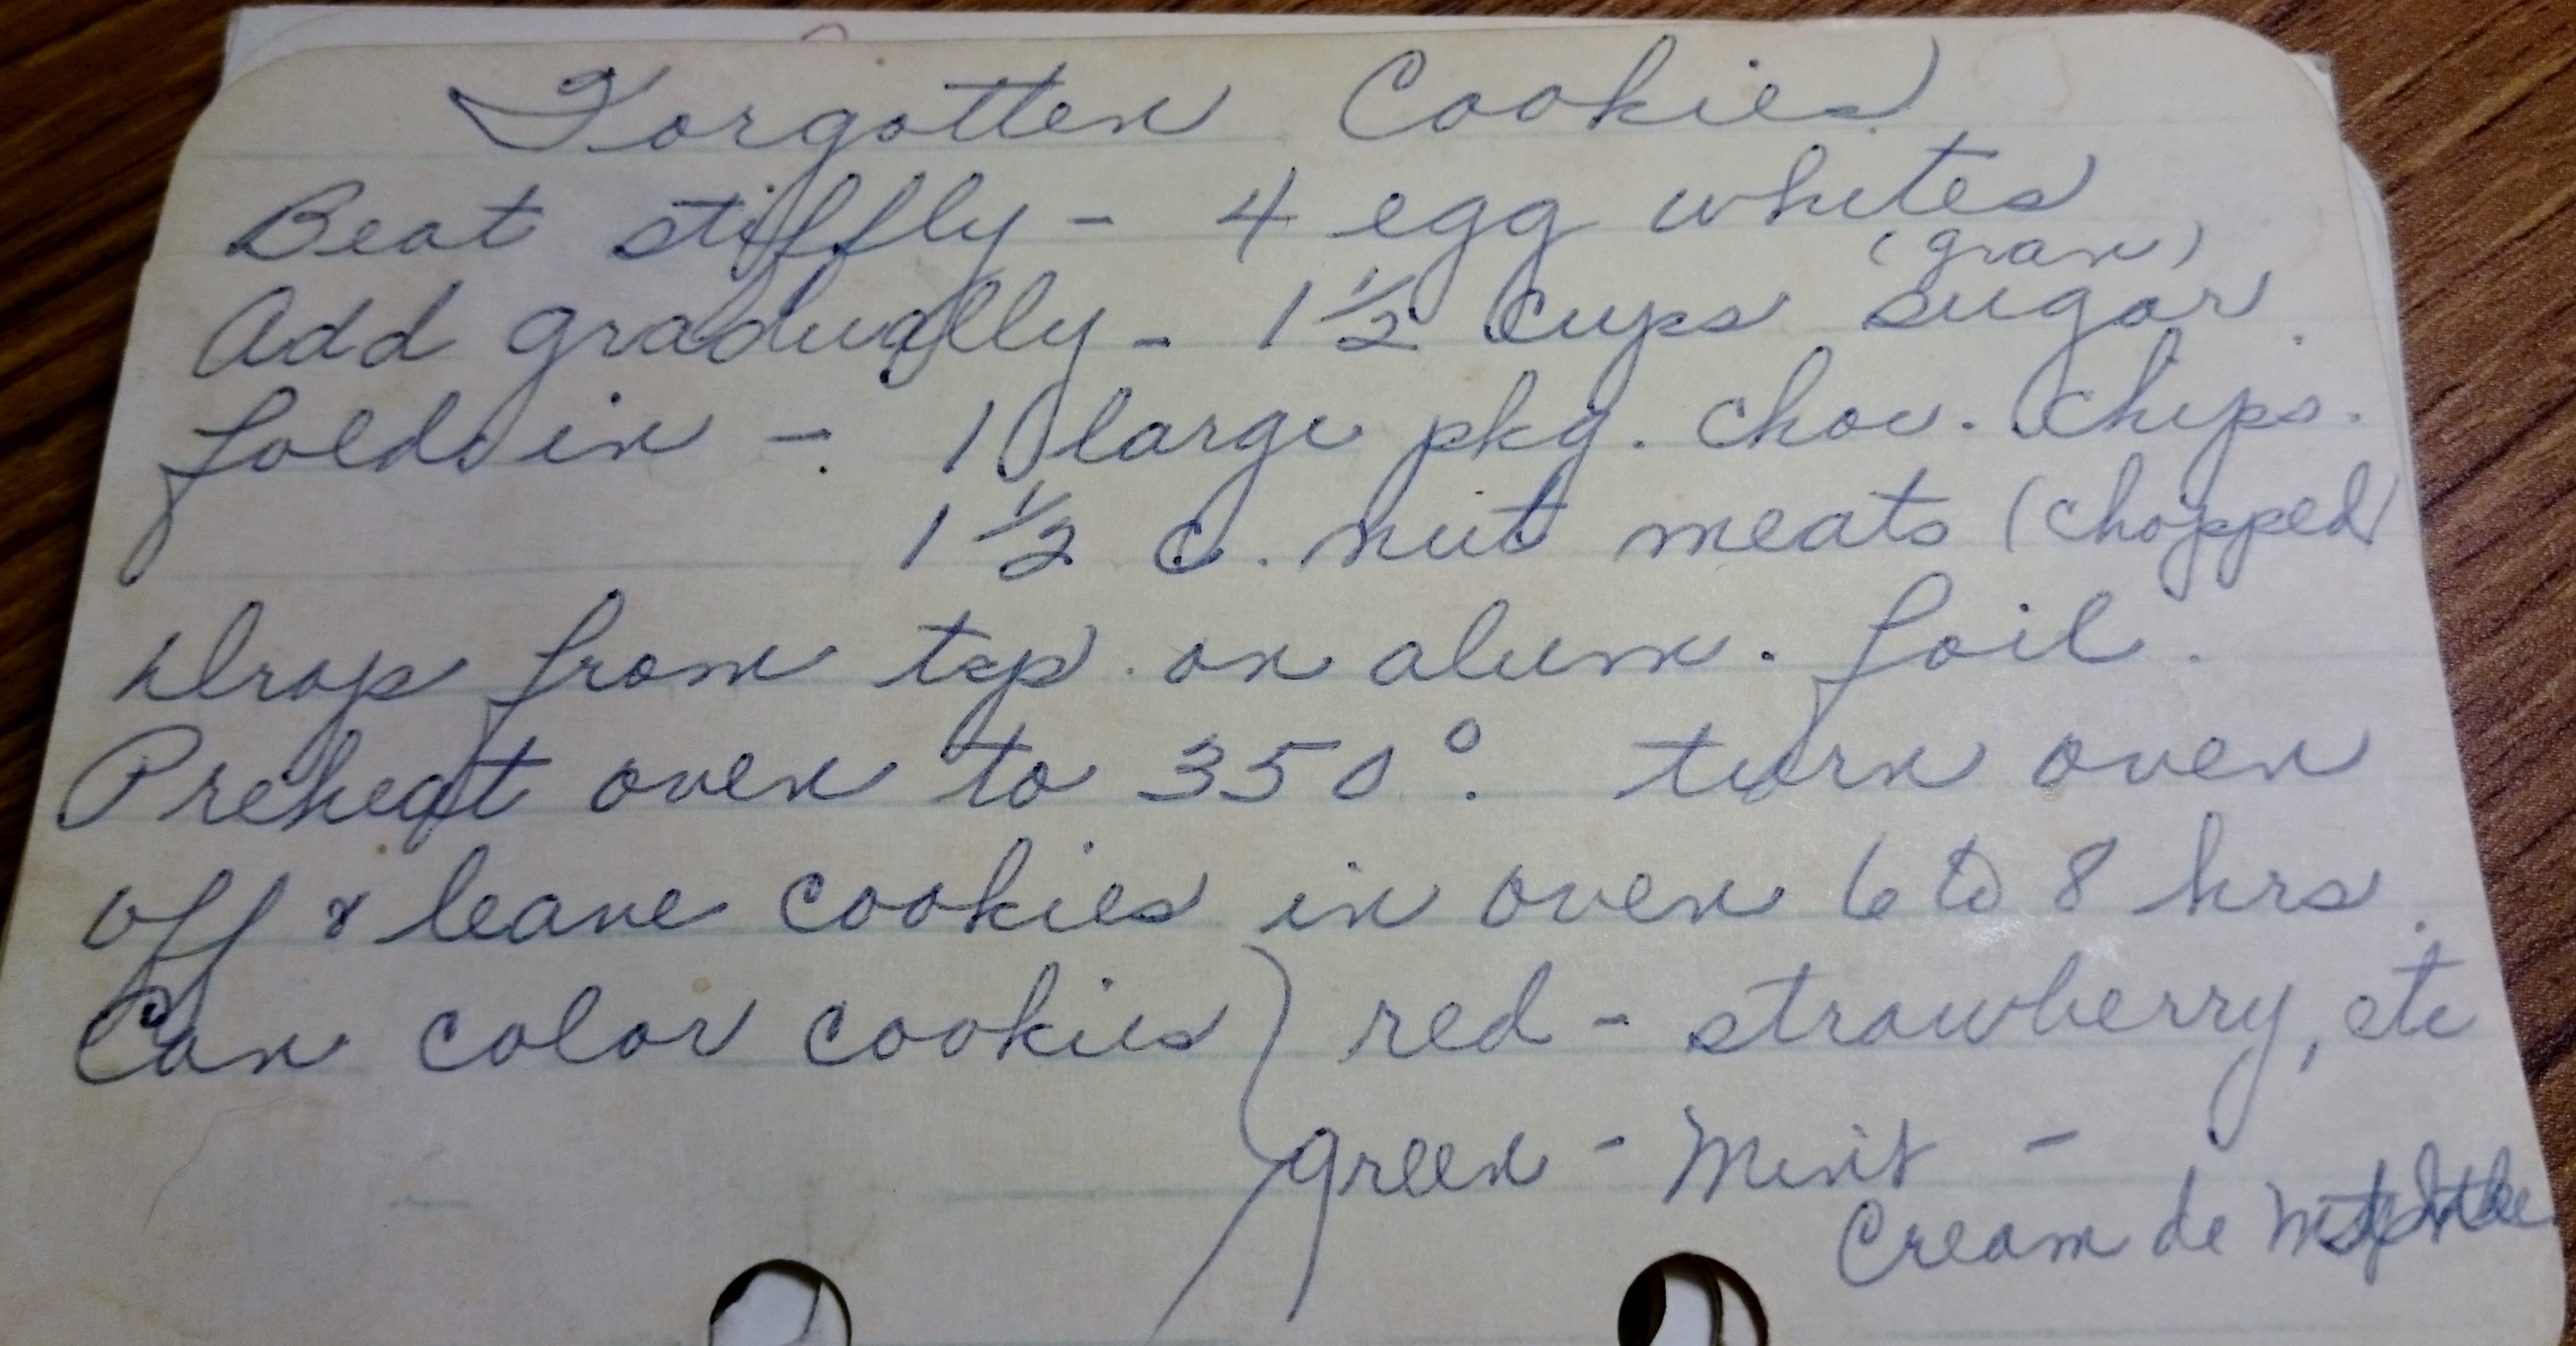 Forgotten Cookies
Beat stiffly - 4 egg whites
(gran)
Add gradually - 1 1/2 cups sugar.
fold in - 1 large pkg. choc. chips.
1 1/2 c. nut meats (chopped)
Drop from tsp. on alum. foil.
Preheat oven to 350°. turn oven
off & leave cookies in oven 6 to 8 hrs.
Can color cookies } red - strawberry, etc
green - Mint -
Cream de